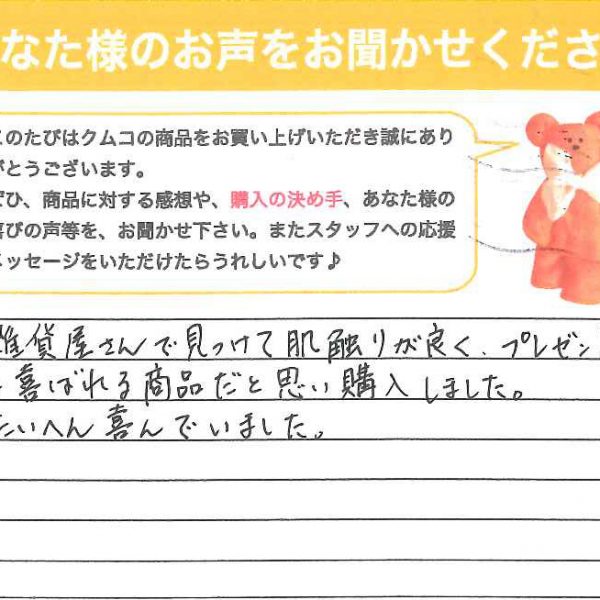 なた様のお声をお聞かせくださ
このたびはクムコの商品をお買い上げいただき誠にあり
がとうございます。
ぜひ、商品に対する感想や、購入の決め手、あなた様の
喜びの声等を、お聞かせ下さい。またスタッフへの応援
メッセージをいただけたらうれしいです♪
雑貨屋さんで見つけて肌触りが良く、プレゼン
喜ばれる商品だと思い購入しました。
たいへん喜んでいました。